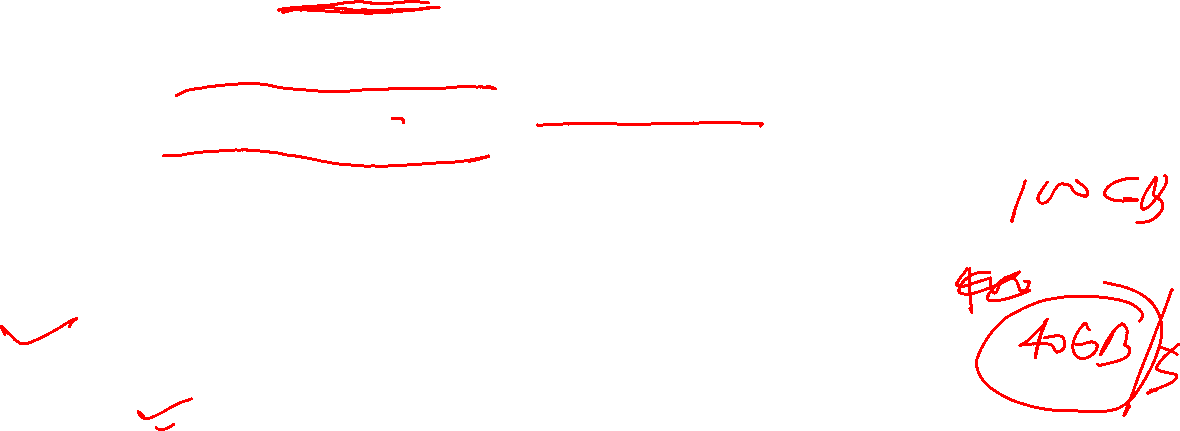 100 GB
40GB/s